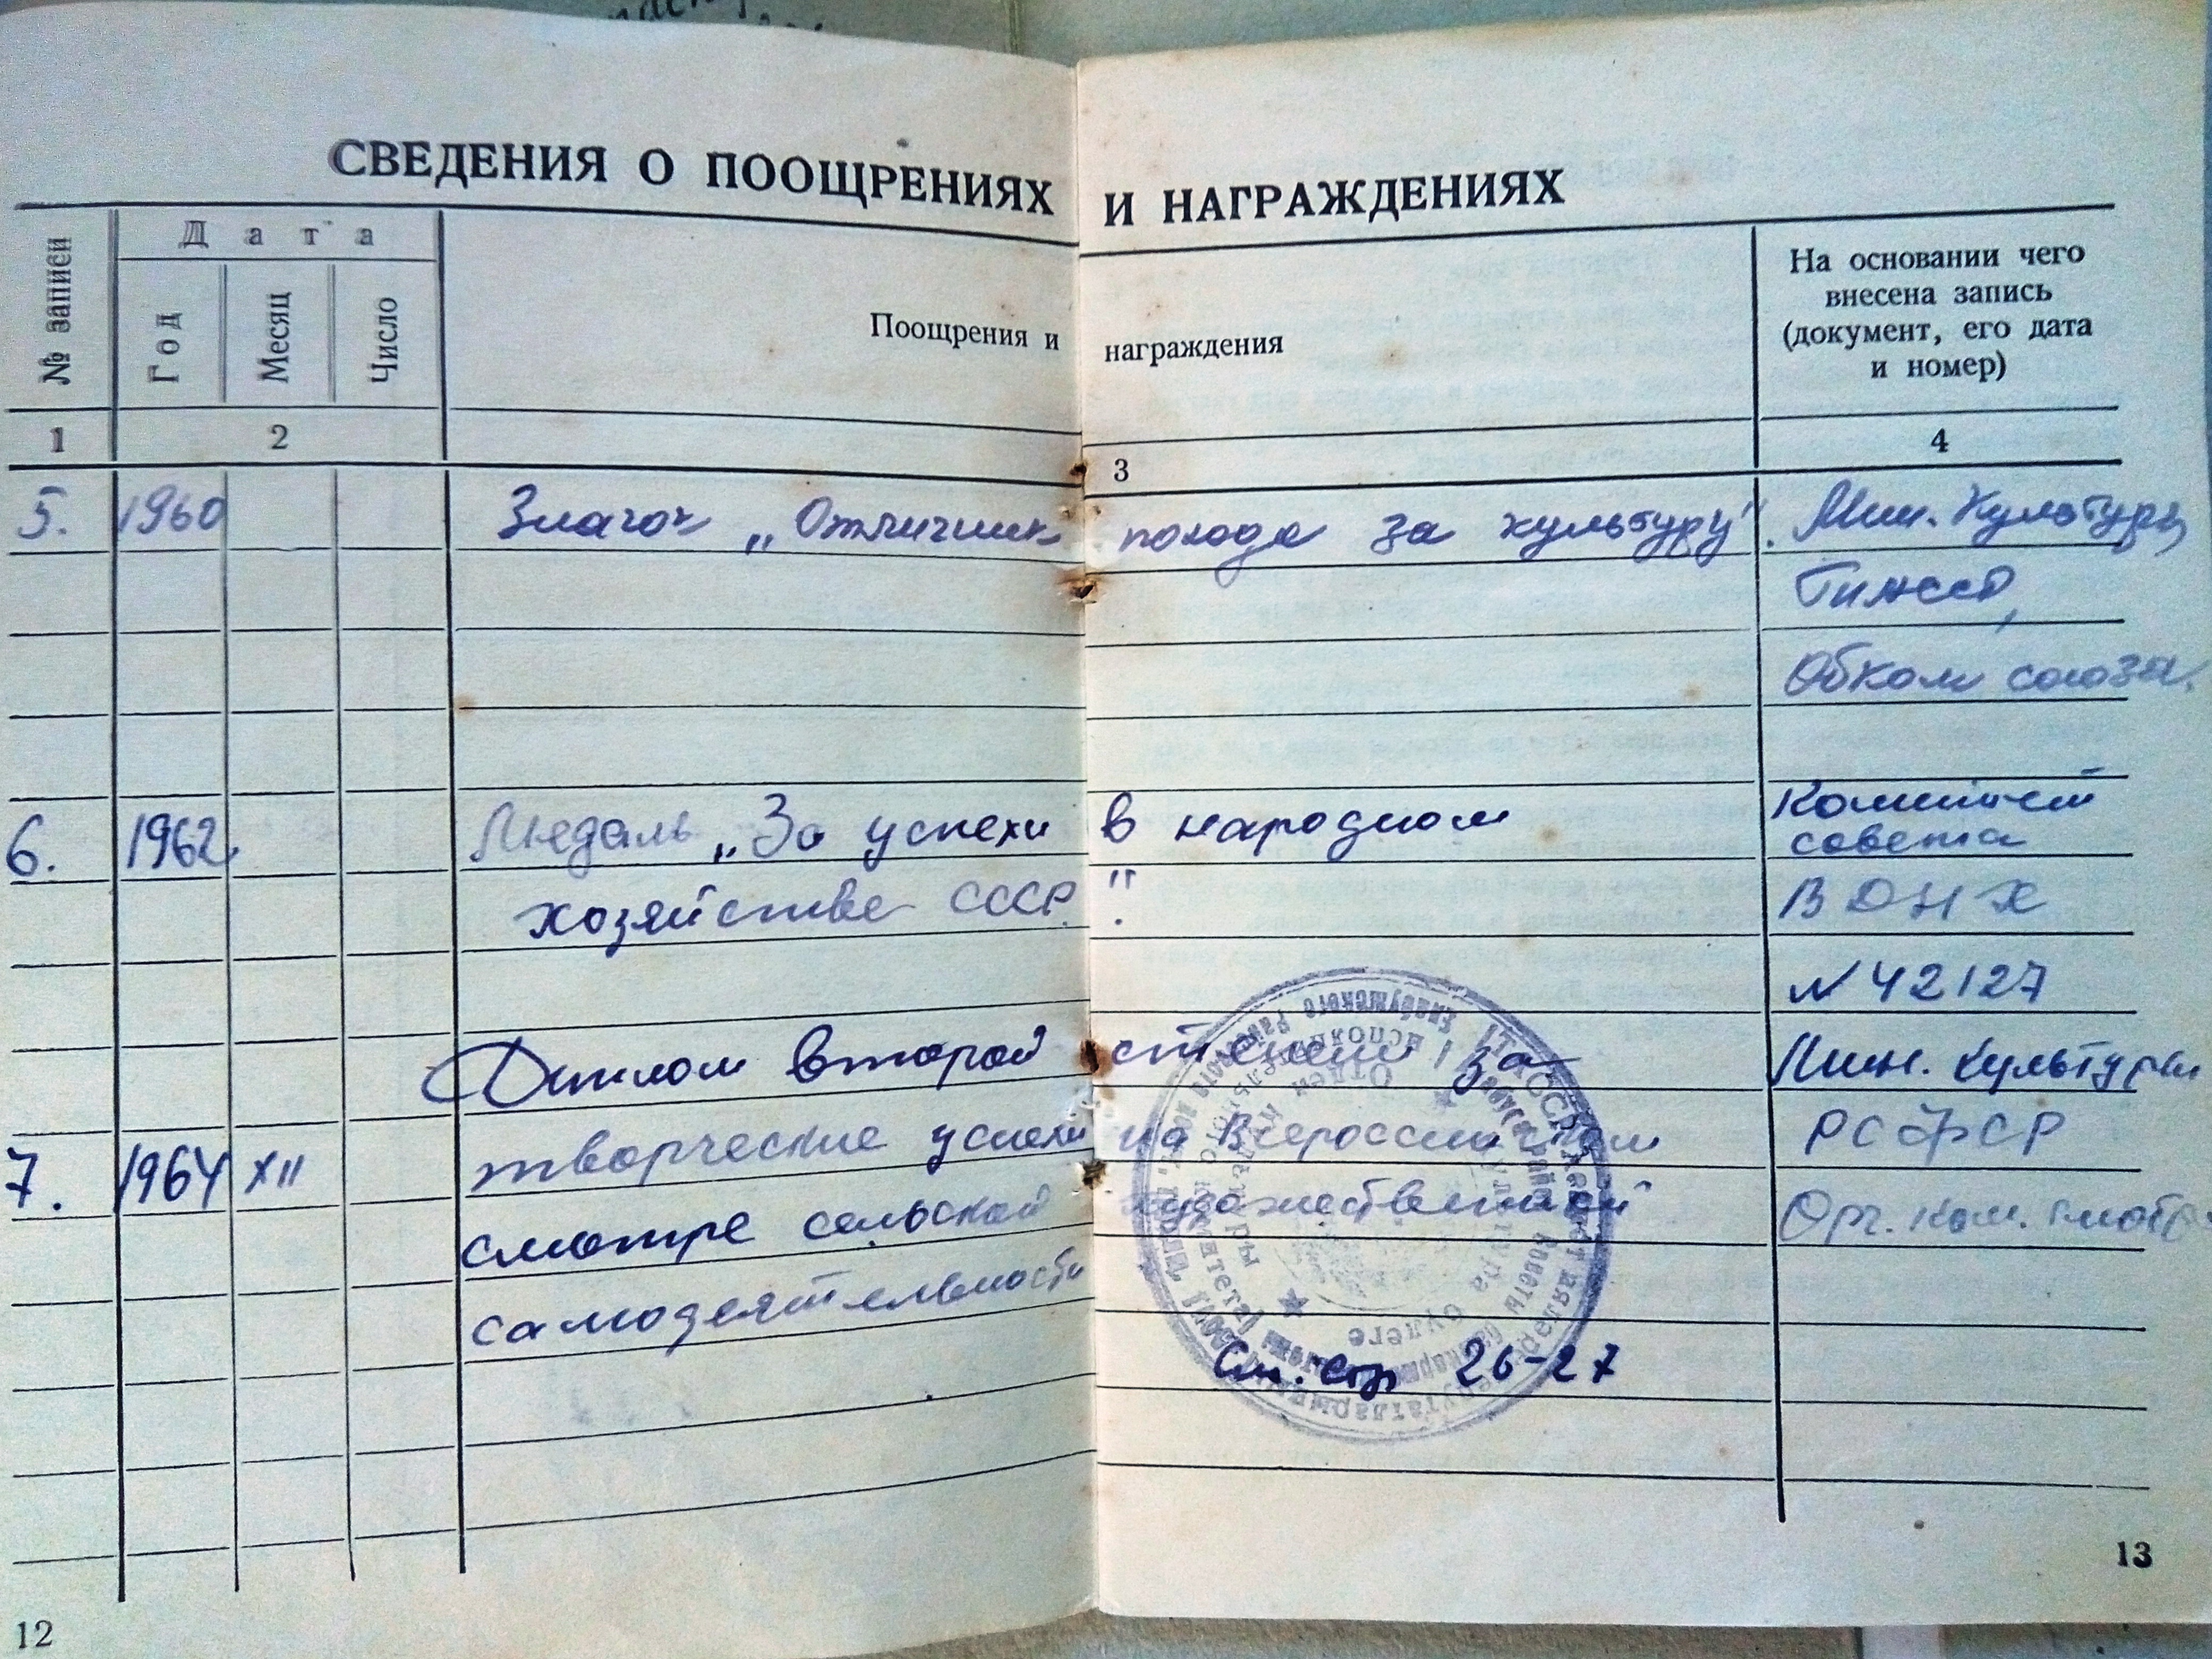 СВЕДЕНИЯ О ПООЩРЕНИЯХ И НАГРАЖДЕНИЯХ
№ записи
Дата
Год
Месяц
Число
Поощрения и награждения
На основании чего
внесена запись
(документ, его дата
и номер)
1 2 3 4
5. 1960 Значок „Отличник похода за культуру". Мин. Культуры
ТАССР,
Обком союза.
6. 1962 Медаль „За успехи в народном Комитет
совета
хозяйстве СССР." ВДНХ
N 42127
Диплом второй степени, за Мин. культуры
творческие успехи на Всероссийском РСФСР
7. 1964 XII смотре сельской художественной Орг. ком. смотра
самодеятельности
См. стр 26-27
12
13